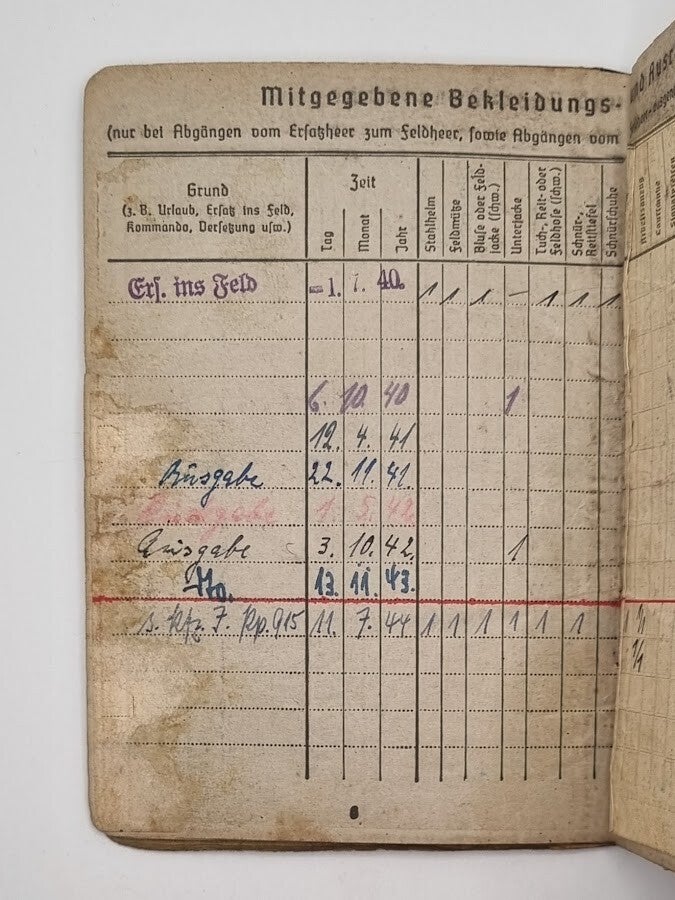 Mitgegebene Bekleidungs-
(nur bei Abgängen vom Ersatzheer zum Feldheer, sowie Abgängen vom
Grund
(z. B. Urlaub, Ersatz ins Feld,
Kommando, Versetzung usw.)
Zeit
Tag
Monat
Jahr
Stahlhelm
Feldmütze
Bluse oder Feld-
jacke (schw.)
Unterjacke
Tuch-, Reit- oder
Feldhose (schw.)
Schnür-,
Reitstiefel
Schnürschuhe
Ers. ins Feld = 1. 7. 40. 1 1 1 – 1 1 1
6. 10. 40 1
12. 4. 41
Ausgabe 22. 11. 41.
Ausgabe 1. 5. 42
Ausgabe 3. 10. 42. 1
13. 11. 43.
s. Kfz. 7. Kp. 915 11. 7. 44 1 1 1 1 1 1
6
und Ausr